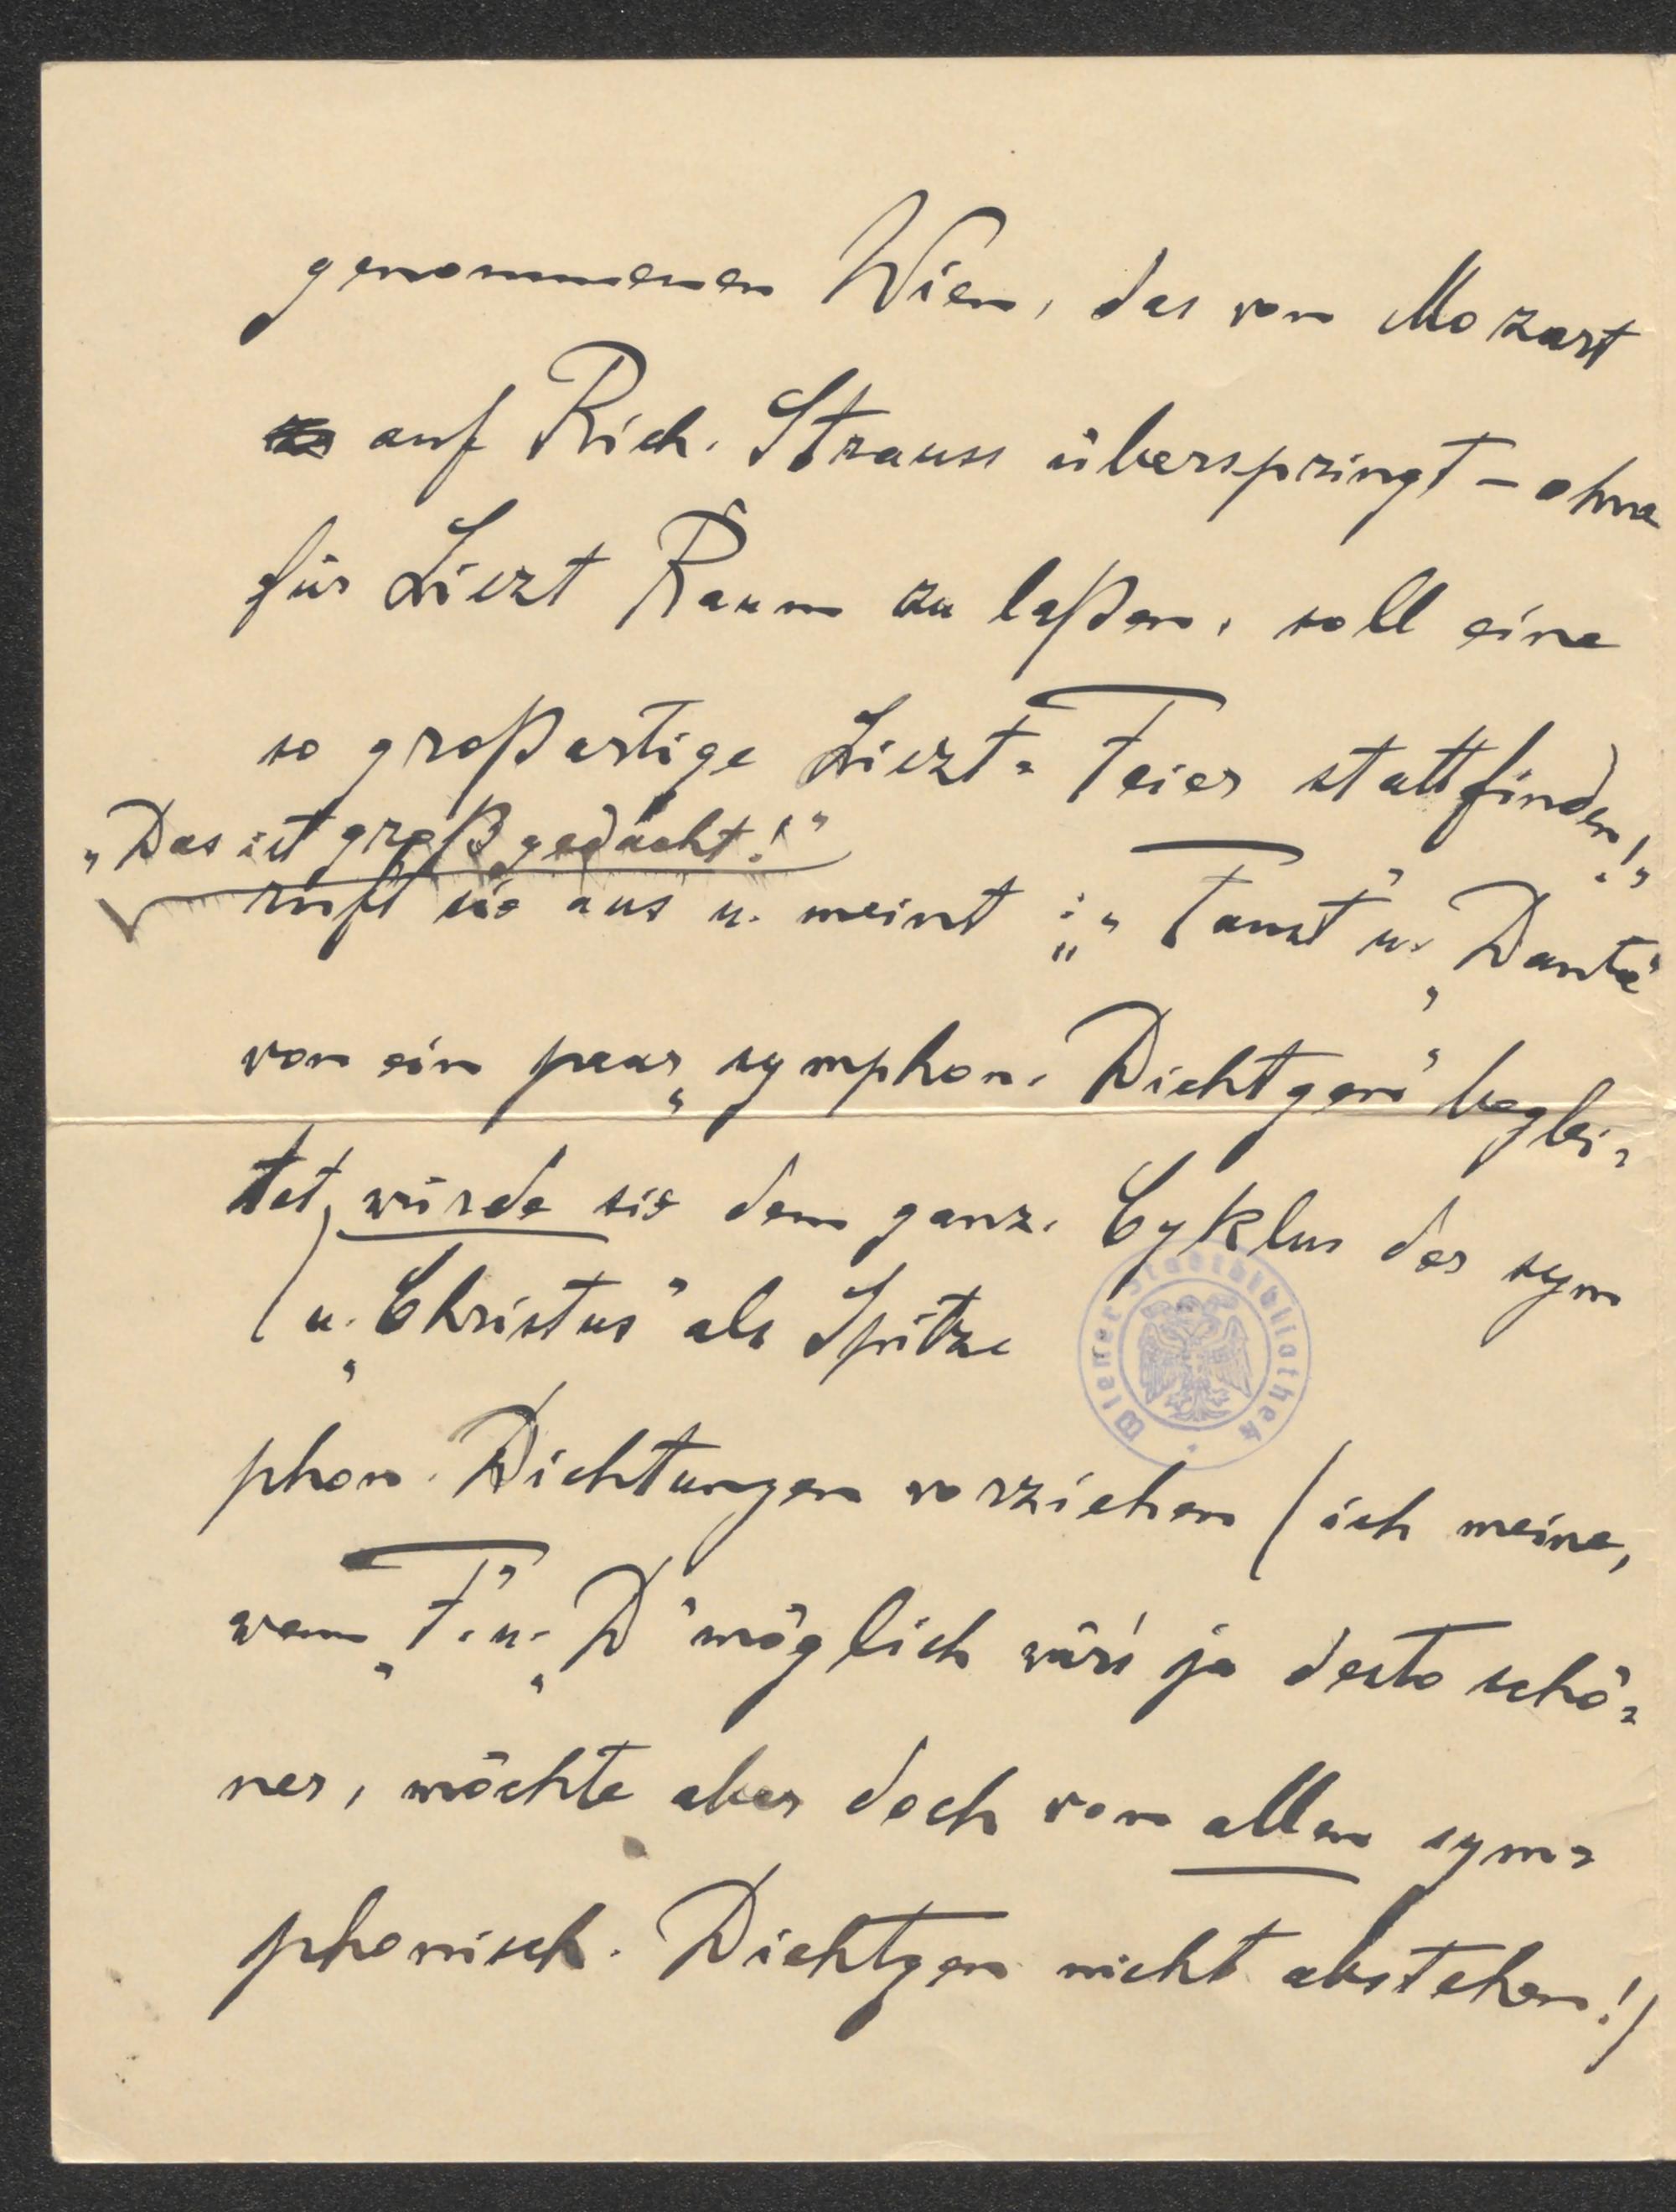 genommenen Wien, das von Mozart
auf Rich. Strauss überspringt – ohne
für Liszt Raum zu laßen, soll eine
so großartige Liszt-Feier stattfinden!"
"Das ist groß gedacht!"
ruft sie aus u. meint: "„Faust" u. „Dante"
von ein paar „symphon. Dichtgen" beglei-
tet, würde sie dem ganz. Cyklus der sym
(u. „Christus" als Spitze
phon. Dichtungen vorziehen (ich meine,
wenn „F." u. „D" möglich wär's ja desto schö-
ner, möchte aber doch von allen sym-
phonisch. Dichtgen nicht abstehen!)
Wiener Stadtbibliothek